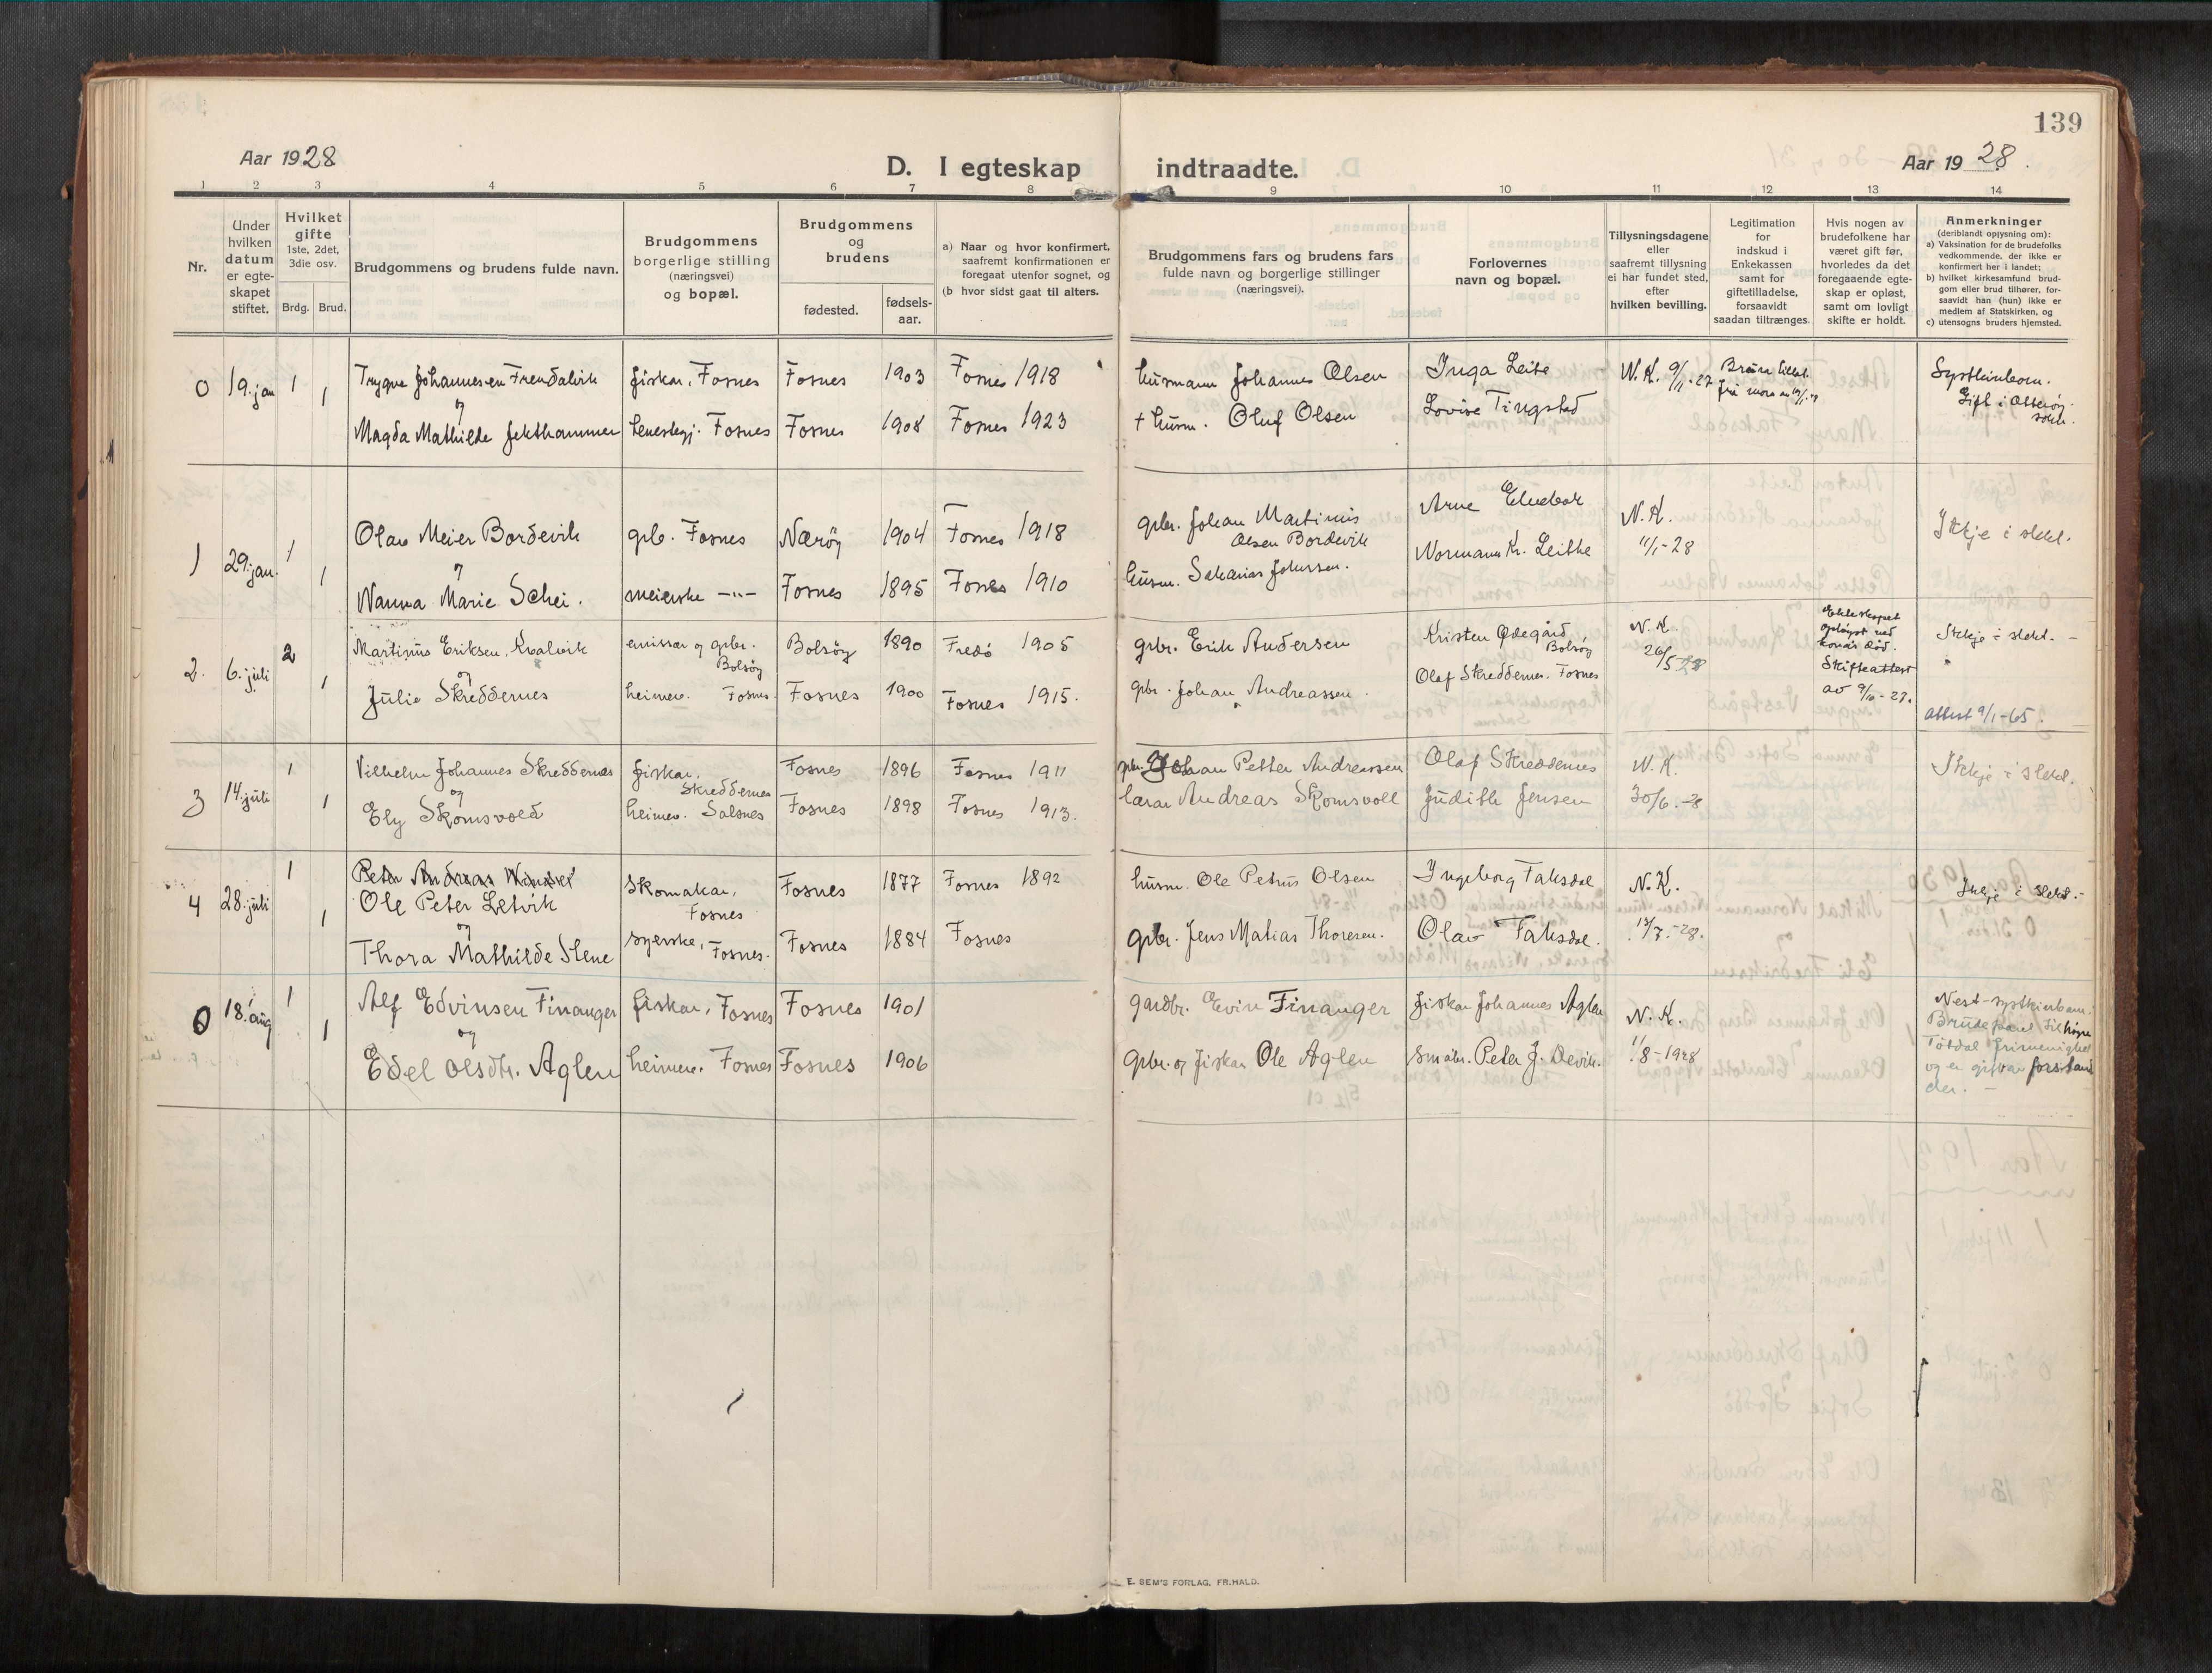 139
Aar 1928
D. I egteskap indtraadte.
Aar 1928.
1 2 3 4 5 6 7 8 9 10 11 12 13 14
Nr.
Under hvilken datum er egte-skapet stiftet.
Hvilket gifte 1ste, 2det, 3die osv.
Brdg. Brud.
Brudgommens og brudens fulde navn.
Brudgommens borgerlige stilling (næringsvei) og bopæl.
Brudgommens og brudens
fødested.
fødsels-aar.
a) Naar og hvor konfirmert, saafremt konfirmationen er foregaat utenfor sognet, og
(b hvor sidst gaat til alters.
Brudgommens fars og brudens fars fulde navn og borgerlige stillinger (næringsvei).
Forlovernes navn og bopæl.
Tillysningsdagene eller saafremt tillysning ei har fundet sted, efter hvilken bevilling.
Legitimation for indskud i Enkekassen samt for giftetilladelse, forsaavidt saadan tiltrænges.
Hvis nogen av brudefolkene har været gift før, hvorledes da det foregaaende egte-skap er opløst, samt om lovligt skifte er holdt.
Anmerkninger
(deriblandt opjysning om):
a) Vaksination for de brudefolks vedkommende, der ikke er konfirmert her i landet;
b) hvilket kirkesamfund brud-gom eller brud tilhører, for-saavidt han (hun) ikke er medlem af Statskirken, og
c) utensogns bruders hjemsted.
0 19. jan 1 Trygve Johannesen Frendalvik fiskar, Fosnes Fosnes 1903 Fosnes 1918 husmann Johannes Olsen Inga Leite N. K. 9/11-27
og
1 Magda Mathilde Jekthammer Fosnes Fosnes 1908 Fosnes 1923 † husm. Oluf Olsen Lovise Tingstad
Systkinborn.
Gift i Otterøy sokn.
1 29. jan. 1 Olav Meier Bordevik grb. Fosnes Nærøy 1904 Fosnes 1918 grbr. Johan Martinus Olsen Bordevik Arne N. K. 11/1-28 Ikkje i slekt.
og
1 Nanna Marie Schei. meierske -"- Fosnes 1895 Fosnes 1910 husm. Sakarias Johnsen. Normann Kr. Leithe
2. 6. juli 2 Martinus Eriksen Kvalvik emissær og grbr. Bolsøy Bolsøy 1890 Fredø 1905 grbr. Erik Andersen Kristen Ødegård Bolsøy N. K. 26/5 28 Ekteskapet opløyst ved konas død. Skifteattest av 9/10-27. Ikkje i slekt. -
og
1 Julie Skreddernes heimev. Fosnes Fosnes 1900 Fosnes 1915. grbr. Johan Andreassen. Olaf Skreddernes. Fosnes
Attest 9/1-65.
3 14. juli 1 Vilhelm Johannes Skreddernes fiskar, Skreddernes Fosnes 1896 Fosnes 1911 grbr. Johan Petter Andreassen Olaf Skreddernes N. K. 30/6.-28 Ikkje i slekt.
og
1 Ely Skomsvold heimev. Salsnes Fosnes 1898 Fosnes 1913. lærar Andreas Skomsvoll Judith Jensen
4 28. juli 1 Peter Andreas
Ole Peter Letvik Skomakar, Fosnes Fosnes 1877 Fosnes 1892 husm. Ole Petrus Olsen Ingeborg Faksdal N. K. 13/7.-28. Ikkje i slekt.-
og
1 Thora Mathilde Stene syerske, Fosnes. Fosnes 1884 Fosnes grbr. Jens Matias Thoresen. Olav Faksdal.
0 18. aug 1 Alf Edvinsen Finanger fiskar, Fosnes Fosnes 1901 gardbr. Evin Finanger fiskar Johannes Aglen N. K. 1/8-1928
og
1 Edel Olsdtr. Aglen heimev. Fosnes Fosnes 1906 grbr. og fiskar Ole Aglen småbr. Peter J. Devik.
Nest-systkinbarn.
Brudeparet tilhøyre
Totdal frimenighet
og er gift av forstand
der. -
E. SEM'S FORLAG, FR.HALD.